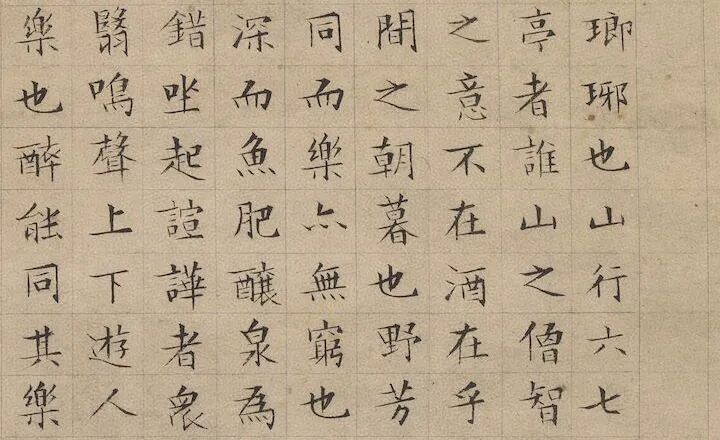 瑯琊也山行六七
亭者誰山之僧智
之意不在酒在乎
間之朝暮也野芳
同而樂亦無窮也
深而魚肥釀泉為
錯坐起諠譁者衆
翳鳴聲上下遊人
樂也醉能同其樂